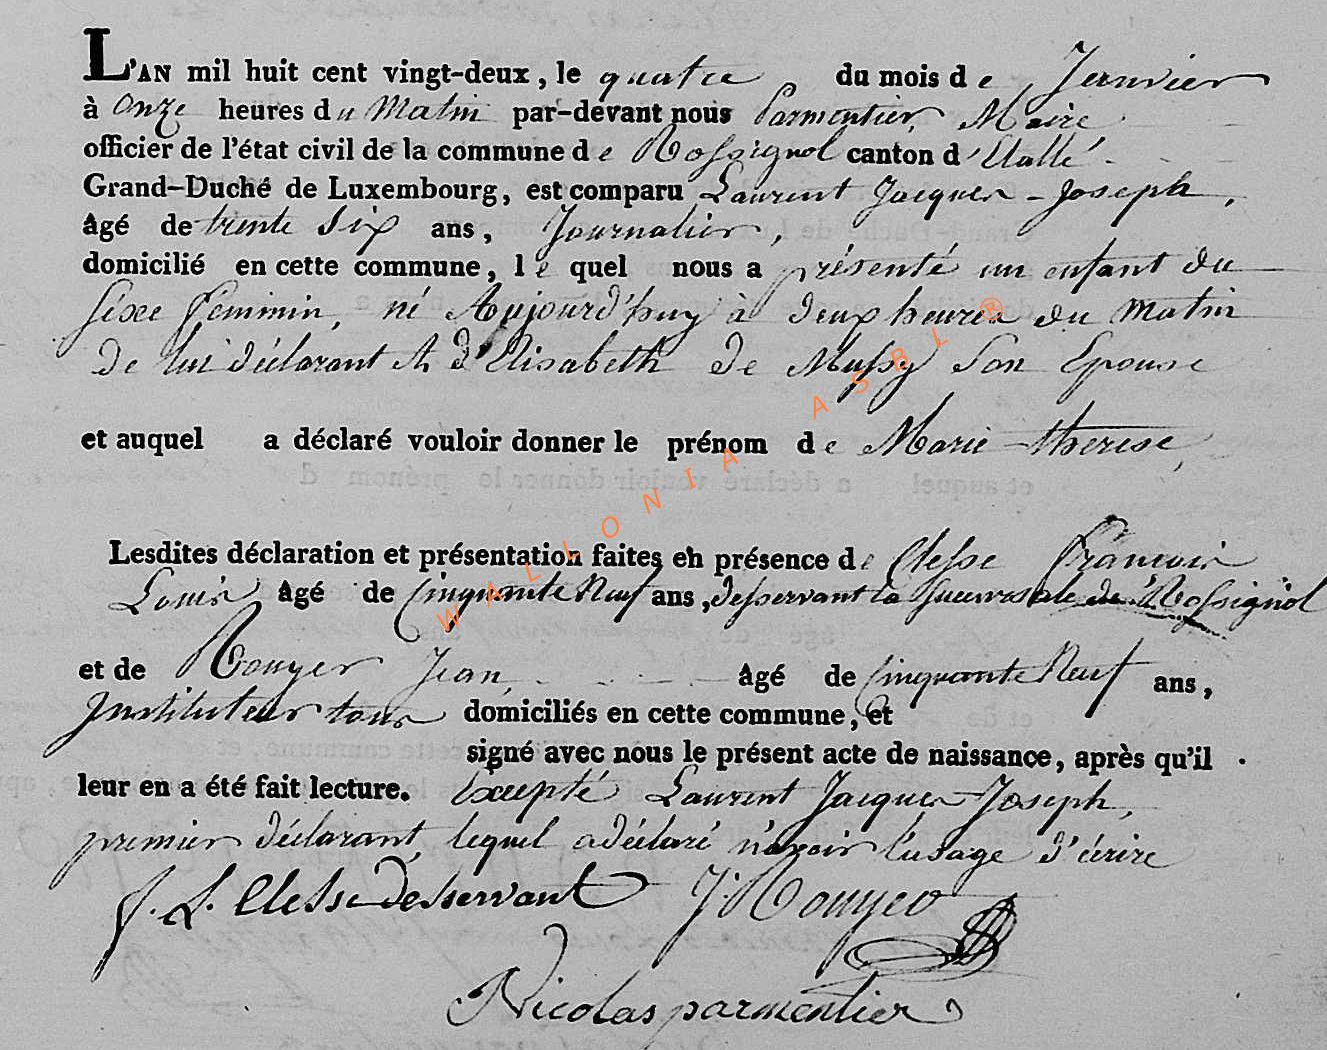 L'AN mil huit cent vingt-deux, le quatre du mois de Janvier
à Onze heures du Matin par-devant nous Parmentier, Maire,
officier de l'état civil de la commune de Rossignol canton d'Etalle
Grand-Duché de Luxembourg, est comparu Laurent Jacques-Joseph,
âgé de trente Six ans, Journalier,
domicilié en cette commune, le quel nous a présenté un enfant du
Sexe feminin, né Aujourd'huy à deux heures du Matin
de lui déclarant & d'Elisabeth de Mussy Son Epouse
et auquel a déclaré vouloir donner le prénom de Marie-therese,
Lesdites déclaration et présentation faites en présence de Clesse Francois
Louis âgé de Cinquante Neuf ans, desservant la Succursale de Rossignol
et de Rouyer Jean, âgé de Cinquante Neuf ans,
Instituteur tous domiciliés en cette commune, et
signé avec nous le présent acte de naissance, après qu'il
leur en a été fait lecture. Excepté Laurent Jacques-Joseph,
premier déclarant, lequel a déclaré n'avoir l'usage d'écrire
f. L. Clesse desservant J: Rouyer
Nicolas parmentier
WALLONIA ASBL ®